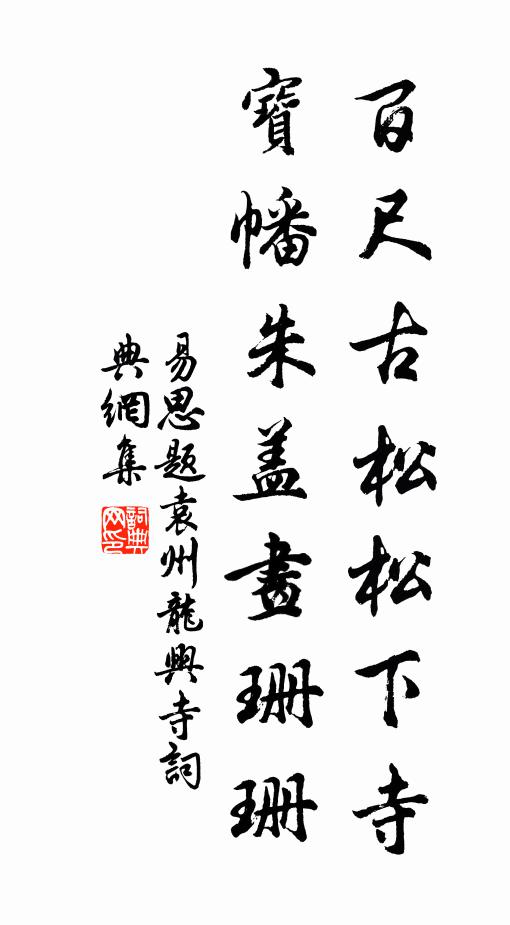 百尺古松松下寺
寶幡朱盖畫珊珊
易思題袁州龍興寺詞
典網集
詞典
网印